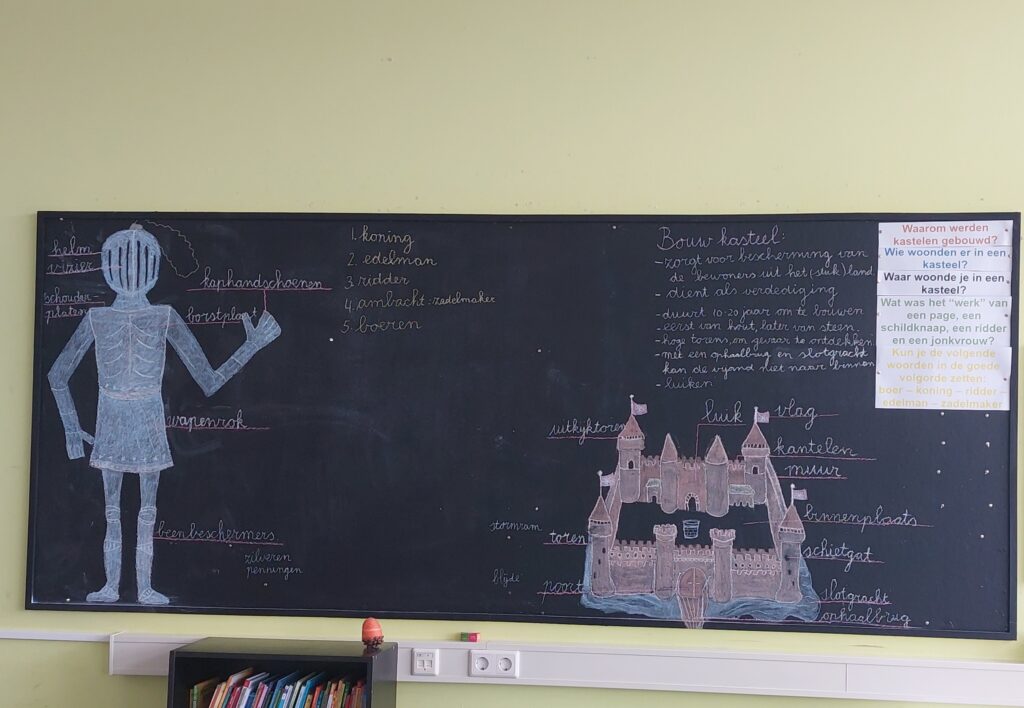 helm
vizier
schouder-
platen
kaphandschoenen
borstplaat
wapenrok
beenbeschermers
zilveren
penningen
1. koning
2. edelman
3. ridder
4. ambacht: zadelmaker
5. boeren
Bouw kasteel:
- zorgt voor bescherming van
de bewoners uit het (stuk) land
- dient als verdediging
- duurt 10-20 jaar om te bouwen
- eerst van hout, later van steen
- hoge torens, om gevaar te ontdekken
- met een ophaalbrug en slotgracht
kan de vijand niet naar binnen
- luiken
uitkijktoren
luik
vlag
kantelen
muur
binnenplaats
stormram
toren
schietgat
blijde
poort
slotgracht
ophaalbrug
Waarom werden
kastelen gebouwd?
Wie woonden er in een
kasteel?
Waar woonde je in een
kasteel?
Wat was het “werk” van
een page, een
schildknaap, een ridder
en een jonkvrouw?
Kun je de volgende
woorden in de goede
volgorde zetten:
boer – koning – ridder –
edelman – zadelmaker